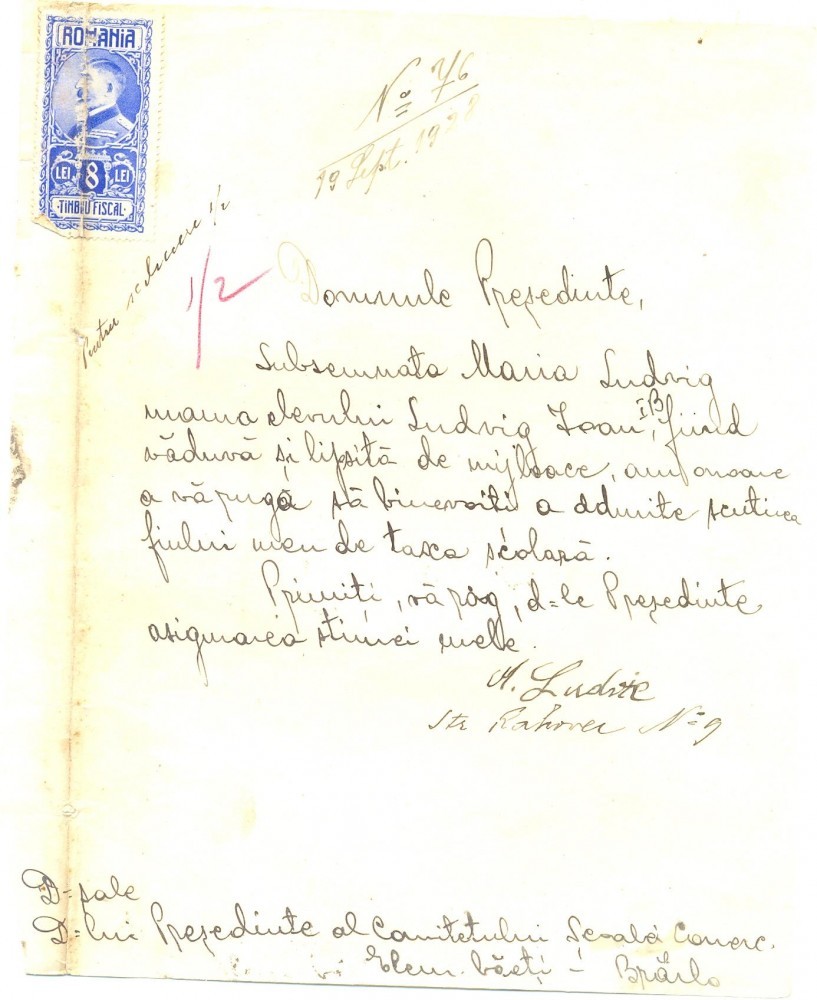 ROMANIA
LEI 8 LEI
TIMBRU FISCAL
No 76
19 Sept. 192
Pentru reducere 1/2
1/2
Domnule Președinte,
Subsemnata Maria Ludvig
mama elevului Ludvig Ioan, I B, fiind
văduvă și lipsită de mijloace, am onoare
a vă ruga să binevoiti a admite scutirea
fiului meu de taxa școlară.
Primiți, vă rog, d=le Președinte
asigurarea stimei mele.
M. Ludvic
Str Rahovei No 9
D=sale
D=lui Președinte al Comitetului Școalei Comerc.
Elem. băeți - Brăila